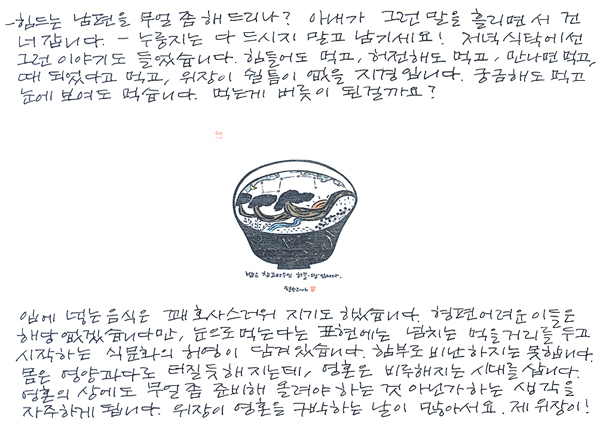 -힘드는 남편을 무얼 좀 해 드리나? 아내가 그런 말을 흘리면서 건
너갑니다. - 누룽지는 다 드시지 말고 남기세요! 저녁식탁에선
그런 이야기도 들었습니다. 힘들어도 먹고, 허전해도 먹고, 만나면 먹고,
때 되었다고 먹고, 위장이 쉴 틈이 없을 지경입니다. 궁금해도 먹고
눈에 보여도 먹습니다. 먹는게 버릇이 된걸까요?
입에 넣는 음식은 꽤 호사스러워 지기도 했습니다. 형편 어려운 이들은
해당 없겠습니다만, 눈으로 먹는다는 표현에는 넘치는 먹을거리를 두고
시작하는 식문화의 허영이 담겨 있습니다. 함부로 비난하지는 못합니다.
몸은 영양과다로 터질듯 해 지는데, 영혼은 비루해지는 시대를 삽니다.
영혼의 상에도 무얼 좀 준비해 올려야 하는 것 아닌가 하는 생각을
자주하게 됩니다. 위장이 영혼을 구박하는 날이 많아서요. 제 위장이!